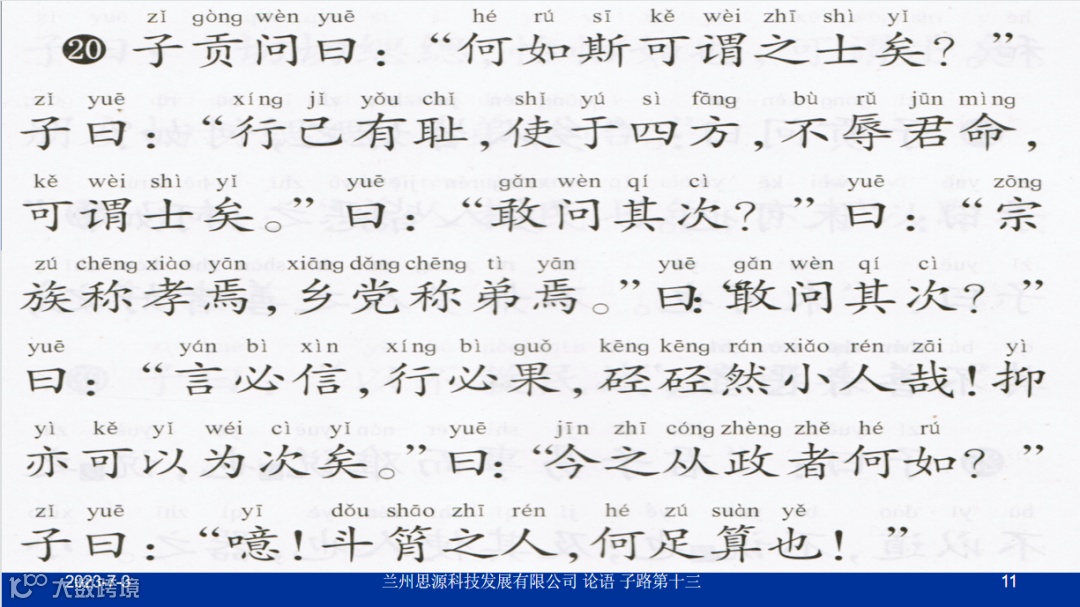 zǐ gòng wèn yuē hé rú sī kě wèi zhī shì yǐ
⑳ 子贡问曰：“何如斯可谓之士矣？”
zǐ yuē xíng jǐ yǒu chǐ shǐ yú sì fāng bù rǔ jūn mìng
子曰：“行己有耻，使于四方，不辱君命，
kě wèi shì yǐ yuē gǎn wèn qí cì yuē zōng
可谓士矣。”曰：“敢问其次？”曰：“宗
zú chēng xiào yān xiāng dǎng chēng tì yān yuē gǎn wèn qí cì
族称孝焉，乡党称弟焉。”曰：“敢问其次？”
yuē yán bì xìn xíng bì guǒ kēng kēng rán xiǎo rén zāi yì
曰：“言必信，行必果，硁硁然小人哉！抑
yì kě yǐ wéi cì yǐ yuē jīn zhī cóng zhèng zhě hé rú
亦可以为次矣。”曰：“今之从政者何如？”
zǐ yuē yī dǒu shāo zhī rén hé zú suàn yě
子曰：“噫！斗筲之人，何足算也！”
2023-7-3 兰州思源科技发展有限公司 论语 子路第十三 11
大数跨境